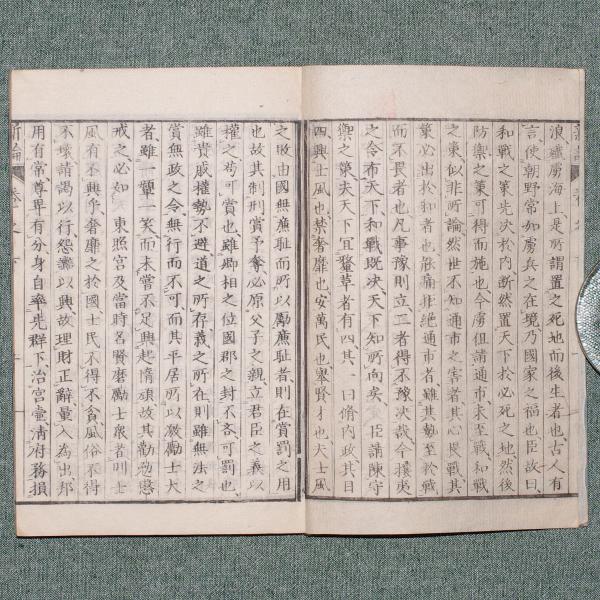 浪艫虜海上是所謂置之死地而後生者也古人有
言使朝野常如虜兵之在境乃國家之福也臣故曰
和戰之策先決於内断然置天下於必死之地然後
防禦之策可得而施也今虜但請通市未至戰和戰
之策似非所論然世不知通市之害者其心畏戰其
策必出於和者也能痛非絶通市者雖其勢至於戰
而不畏者也凡事豫則立二者得不豫決哉今攘夷
之令布天下和戰既決天下知所向矣臣請陳守
禦之策夫天下宜釐革者有四其一曰脩内政其目
四興士風也禁奢靡也安萬民也擧賢才也夫士風
之敗由國無廉耻而所以勵廉耻者則在賞罰之用
也故其制刑賞予奪必原父子之親立君臣之義以
權之苟可賞也雖卿相之位國郡之封不吝可罰也
雖貴戚權勢不避道之所存義之所在則雖無法之
賞無政之令無行而不可而其平居所以激勵士大
者雖一嚬一笑而未嘗不足興起惰頑故其勸勉懲
戒之必如東照宮及當時名賢磨勵士衆者則士
風有不興乎奢靡之於國士民不得不貪風俗不得
不壊請謁以行怨讟以興故理財正辭量入為出邦
用有常尊卑有分身自率先群下治宮壼清府務損
新論 卷之下